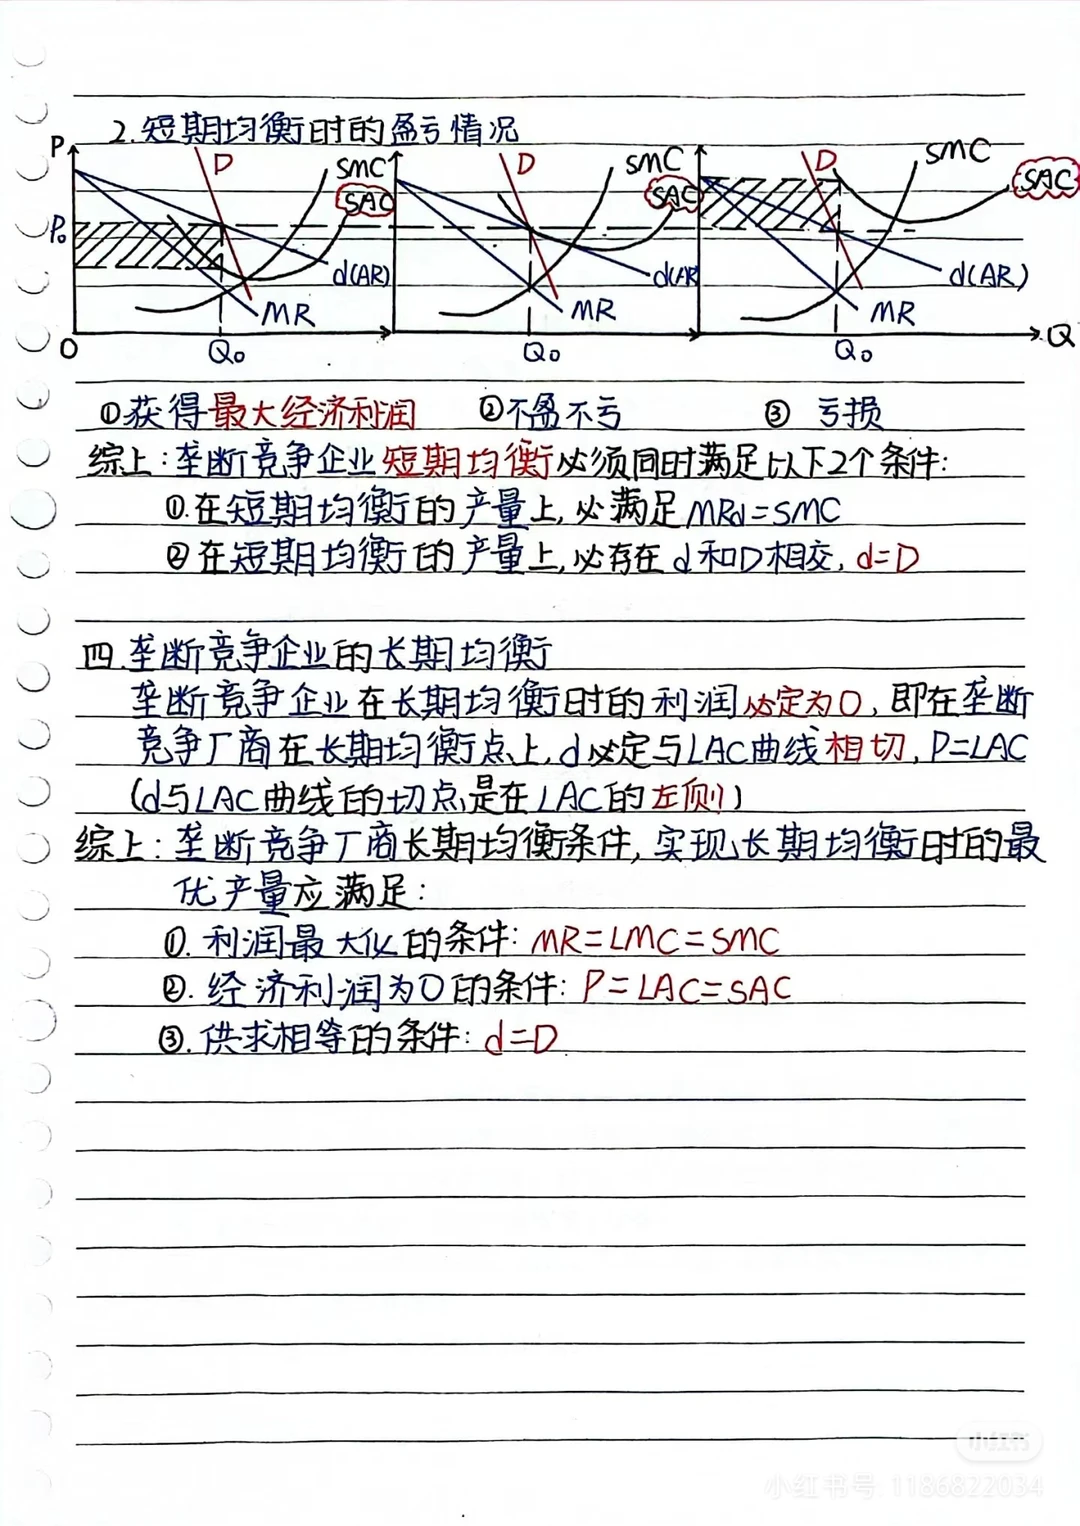 2.短期均衡时的盈亏情况
P D SMC SAC D SMC SAC D SMC SAC
P₀ d(AR) d(AR d(AR)
MR MR MR
O Q₀ Q₀ Q₀ Q
①获得最大经济利润 ②不盈不亏 ③ 亏损
综上:垄断竞争企业短期均衡必须同时满足以下2个条件:
①.在短期均衡的产量上,必满足MRd=SMC
②在短期均衡的产量上,必存在d和D相交,d=D
四.垄断竞争企业的长期均衡
垄断竞争企业在长期均衡时的利润必定为0,即在垄断
竞争厂商在长期均衡点上,d必定与LAC曲线相切,P=LAC
(d与LAC曲线的切点是在LAC的左侧)
综上:垄断竞争厂商长期均衡条件,实现长期均衡时的最
优产量应满足:
①.利润最大化的条件:MR=LMC=SMC
②.经济利润为0的条件:P=LAC=SAC
③.供求相等的条件:d=D
小红书
小红书号:1186822034